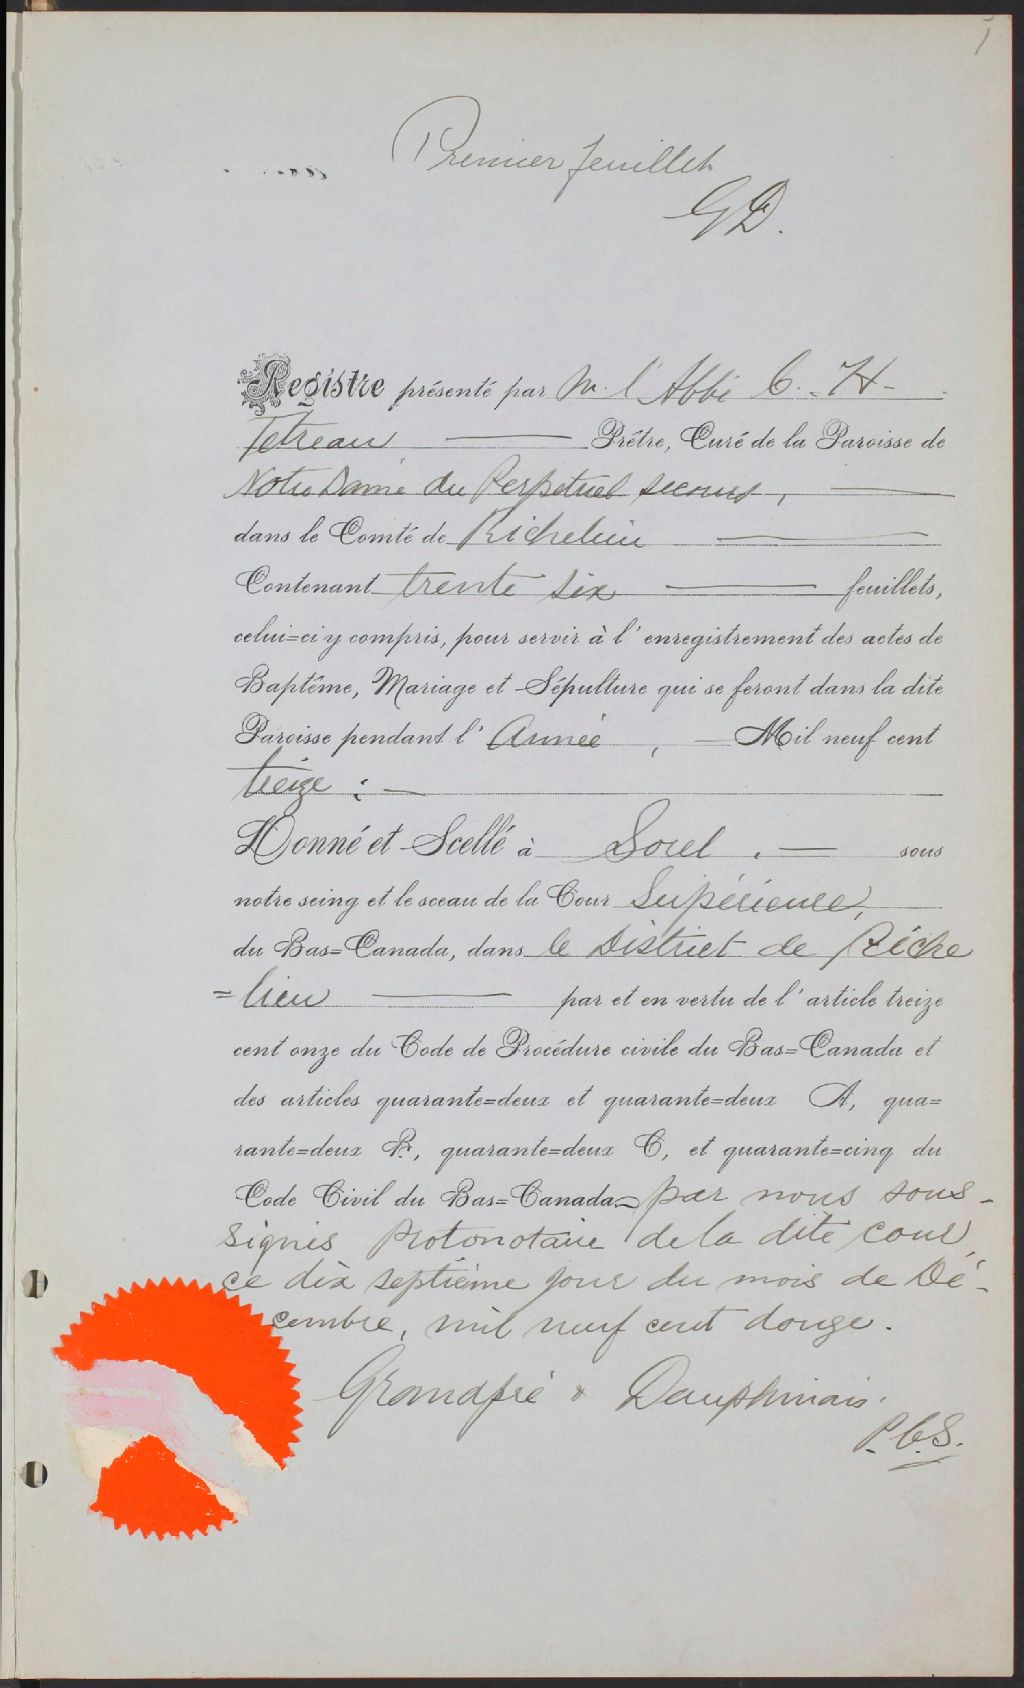 1
Premier feuillet
G D.
Registre présenté par M. l'Abbé C. H-
Tetreau Prêtre, Curé de la Paroisse de
Notre Dame du Perpetuel secours,
dans le Comté de Richelieu
Contenant trente six feuillets,
celui=ci y compris, pour servir à l'enregistrement des actes de
Baptême, Mariage et Sépulture qui se feront dans la dite
Paroisse pendant l'Année, Mil neuf cent
treize : —
Donné et Scellé à Sorel. — sous
notre seing et le sceau de la Cour Supérieure,
du Bas=Canada, dans le District de Riche
=lieu par et en vertu de l'article treize
cent onze du Code de Procédure civile du Bas=Canada et
des articles quarante=deux et quarante=deux A, qua=
rante=deux B, quarante=deux C, et quarante=cinq du
Code Civil du Bas=Canada par nous sous-
signés Protonotaire de la dite cour,
ce dix septième jour du mois de Dé-
cembre, mil neuf cent douze.
Grandpré & Dauphinais.
P.C.S.